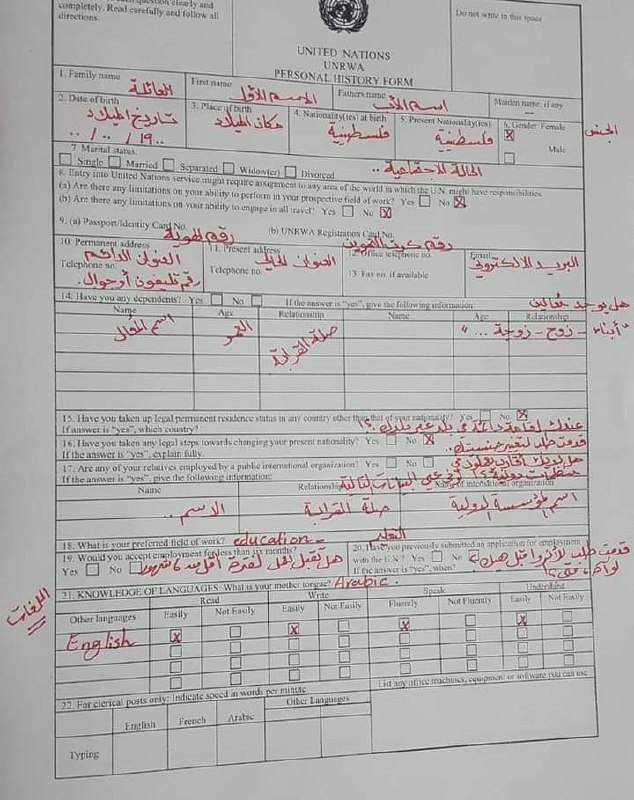 completely. Read carefully and follow all
directions.
Do not write in this space
UNITED NATIONS
UNRWA
PERSONAL HISTORY FORM
1. Family name
العائلة
First name
الاسم الأول
Fathers name
اسم الأب
Maiden name, if any
2. Date of birth
تاريخ الميلاد
../../19..
3. Place of birth
مكان الميلاد
4. Nationality(ies) at birth
فلسطينية
5. Present Nationality(ies)
فلسطينية
6. Gender: Female
X
Male
الجنس
7. Marital status:
Single Married Separated Widow(er) Divorced
الحالة الاجتماعية ..
8. Entry into United Nations service might require assignment to any area of the world in which the U.N. might have responsibilities
(a) Are there any limitations on your ability to perform in your prospective field of work? Yes No X
(b) Are there any limitations on your ability to engage in all travel? Yes No X
9. (a) Passport/Identity Card No.
رقم الهوية
(b) UNRWA Registration Card No.
رقم كرت التموين
10. Permanent address
العنوان الدائم
Telephone no.
رقم تليفون أو جوال.
11. Present address
العنوان الحالي
Telephone no.
12. Office telephone no.
13. Fax no. if available
Email:
البريد الالكتروني
14. Have you any dependents? Yes No If the answer is "yes", give the following information:
هل يوجد معالين
Name Age Relationship Name Age Relationship
اسم المعال
العمر
صلة القرابة
"أبناء - زوج - زوجة ...."
15. Have you taken up legal permanent residence status in any country other than that of your nationality? Yes No X
If answer is "yes", which country?
عندك إقامة دائمة في بلد غير بلدك؟
16. Have you taken any legal steps towards changing your present nationality? Yes No X
If the answer is "yes", explain fully.
قدمت طلب لتغيير جنسيتك..
17. Are any of your relatives employed by a public international organization? Yes No
If the answer is "yes", give the following information:
Name Relationship Name of international organization
الاسم ..
صلة القرابة
اسم المؤسسة الدولية
18. What is your preferred field of work? education
التعليم
19. Would you accept employment for less than six months?
Yes No
هل تقبل العمل لفترة أقل من 6 شهور
20. Have you previously submitted an application for employment
with the U.N.? Yes No
If the answer is "yes", when?
قدمت طلب للأنروا قبل هيك؟
21. KNOWLEDGE OF LANGUAGES: What is your mother tongue? Arabic.
اللغات
Read Write Speak Understand
Other languages Easily Not Easily Easily Not Easily Fluently Not Fluently Easily Not Easily
English X X X X
22. For clerical posts only: Indicate speed in words per minute
List any office machines, equipment or software you can use
English French Arabic Other Languages
Typing